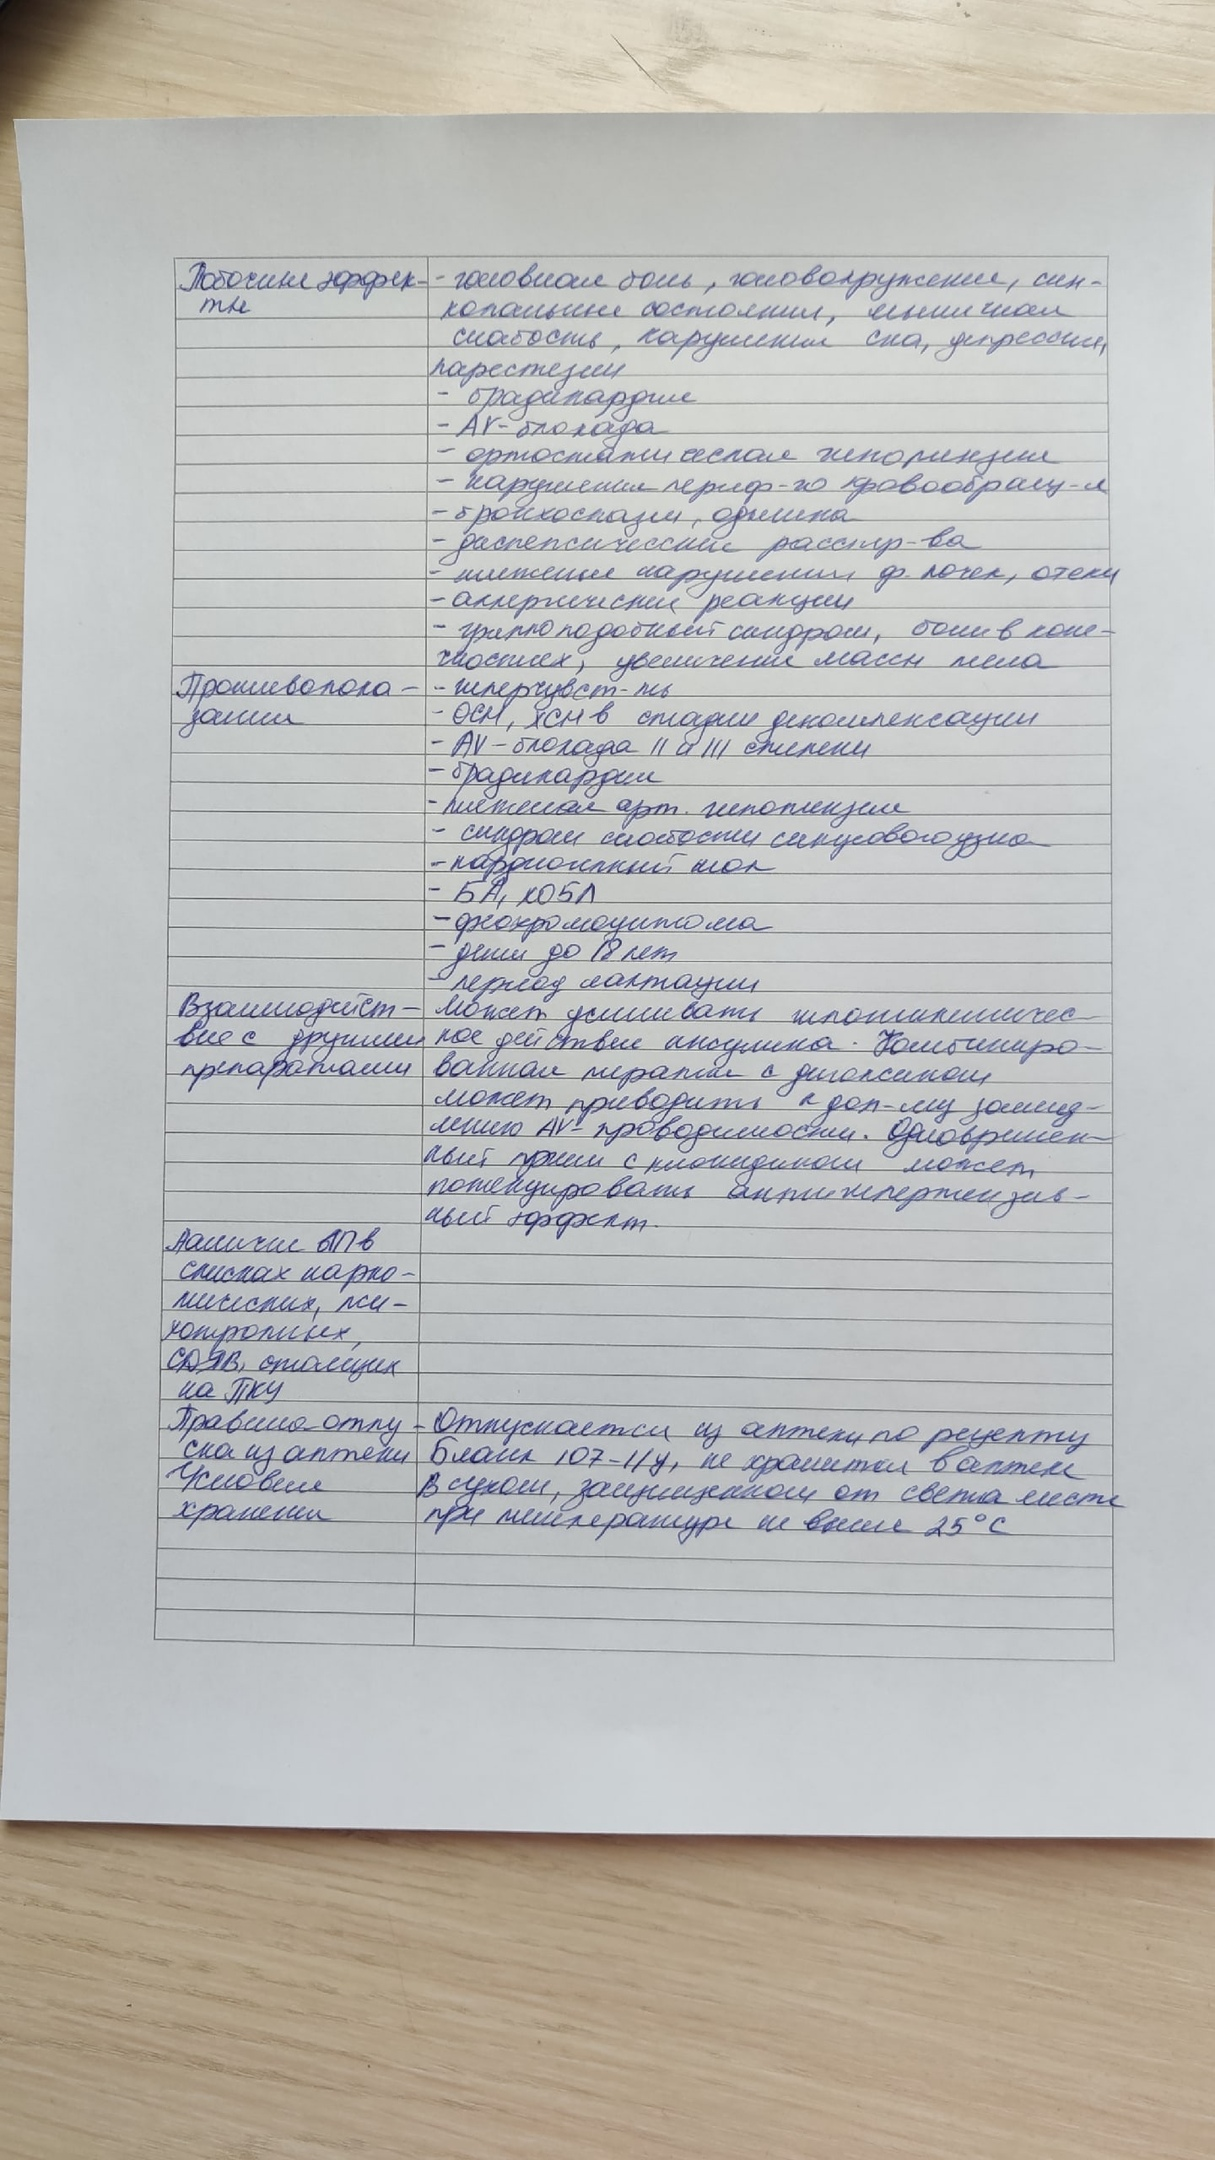 Побочные эффек- - головная боль, головокружение, син-
ты копальные состояния, мышечная
слабость, нарушения сна, депрессия,
парестезии
- брадикардия
- AV-блокада
- ортостатическая гипотензия
- нарушения периф-го кровообращ-я
- бронхоспазм, одышка
- диспепсические расстр-ва
- тяжелые нарушения ф. почек, отеки
- аллергические реакции
- гриппоподобный синдром, боли в коне-
чностях, увеличение массы тела
Противопока- - гиперчувст-ть
зания - ОСН, ХСН в стадии декомпенсации
- AV-блокада II и III степени
- брадикардия
- тяжелая арт. гипотензия
- синдром слабости синусового узла
- кардиогенный шок
- БА, ХОБЛ
- феохромоцитома
- дети до 18 лет
- период лактации
Взаимодейст- Может усиливать гипогликемичес-
вие с другими кое действие инсулина. Комбиниро-
препаратами ванная терапия с дигоксином
может приводить к доп-му замед-
лению AV-проводимости. Одновремен-
ный прием с клонидином может
потенцировать антигипертензив-
ный эффект.
Наличие ЛП в
списках нарко-
тических, пси-
хотропных,
СДЯВ, стоящих
на ПКУ
Правила отпу- Отпускается из аптеки по рецепту
ска из аптеки Бланк 107-1/у, не хранится в аптеке
Условия В сухом, защищенном от света месте
хранения при температуре не выше 25°С